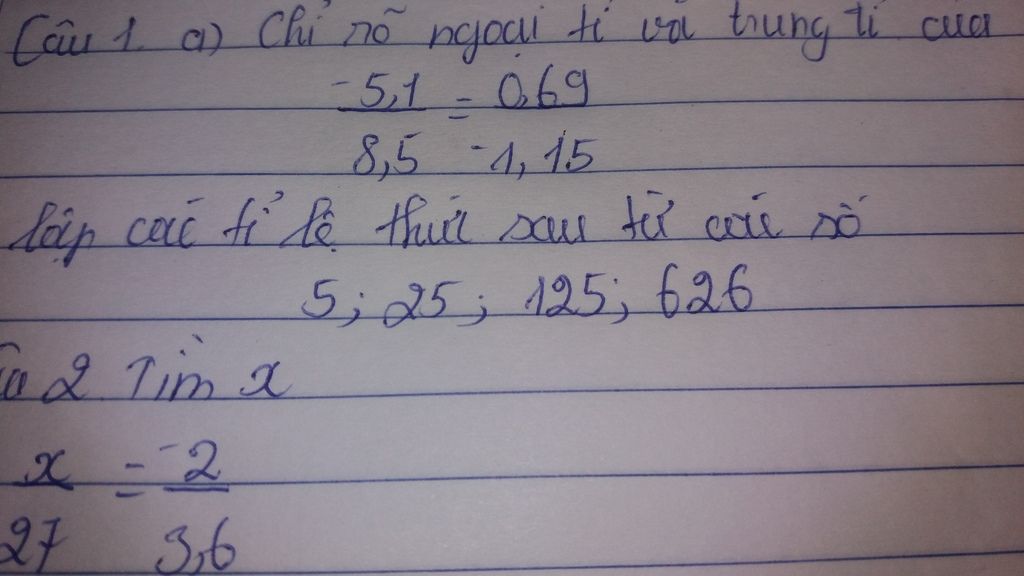 Câu 1 a) Chỉ rõ ngoại tỉ và trung tỉ của
-5,1 = 0,69
8,5 -1,15
lập các tỉ lệ thức sau từ các số
5; 25; 125; 626
2 Tìm x
x = -2
27 3,6